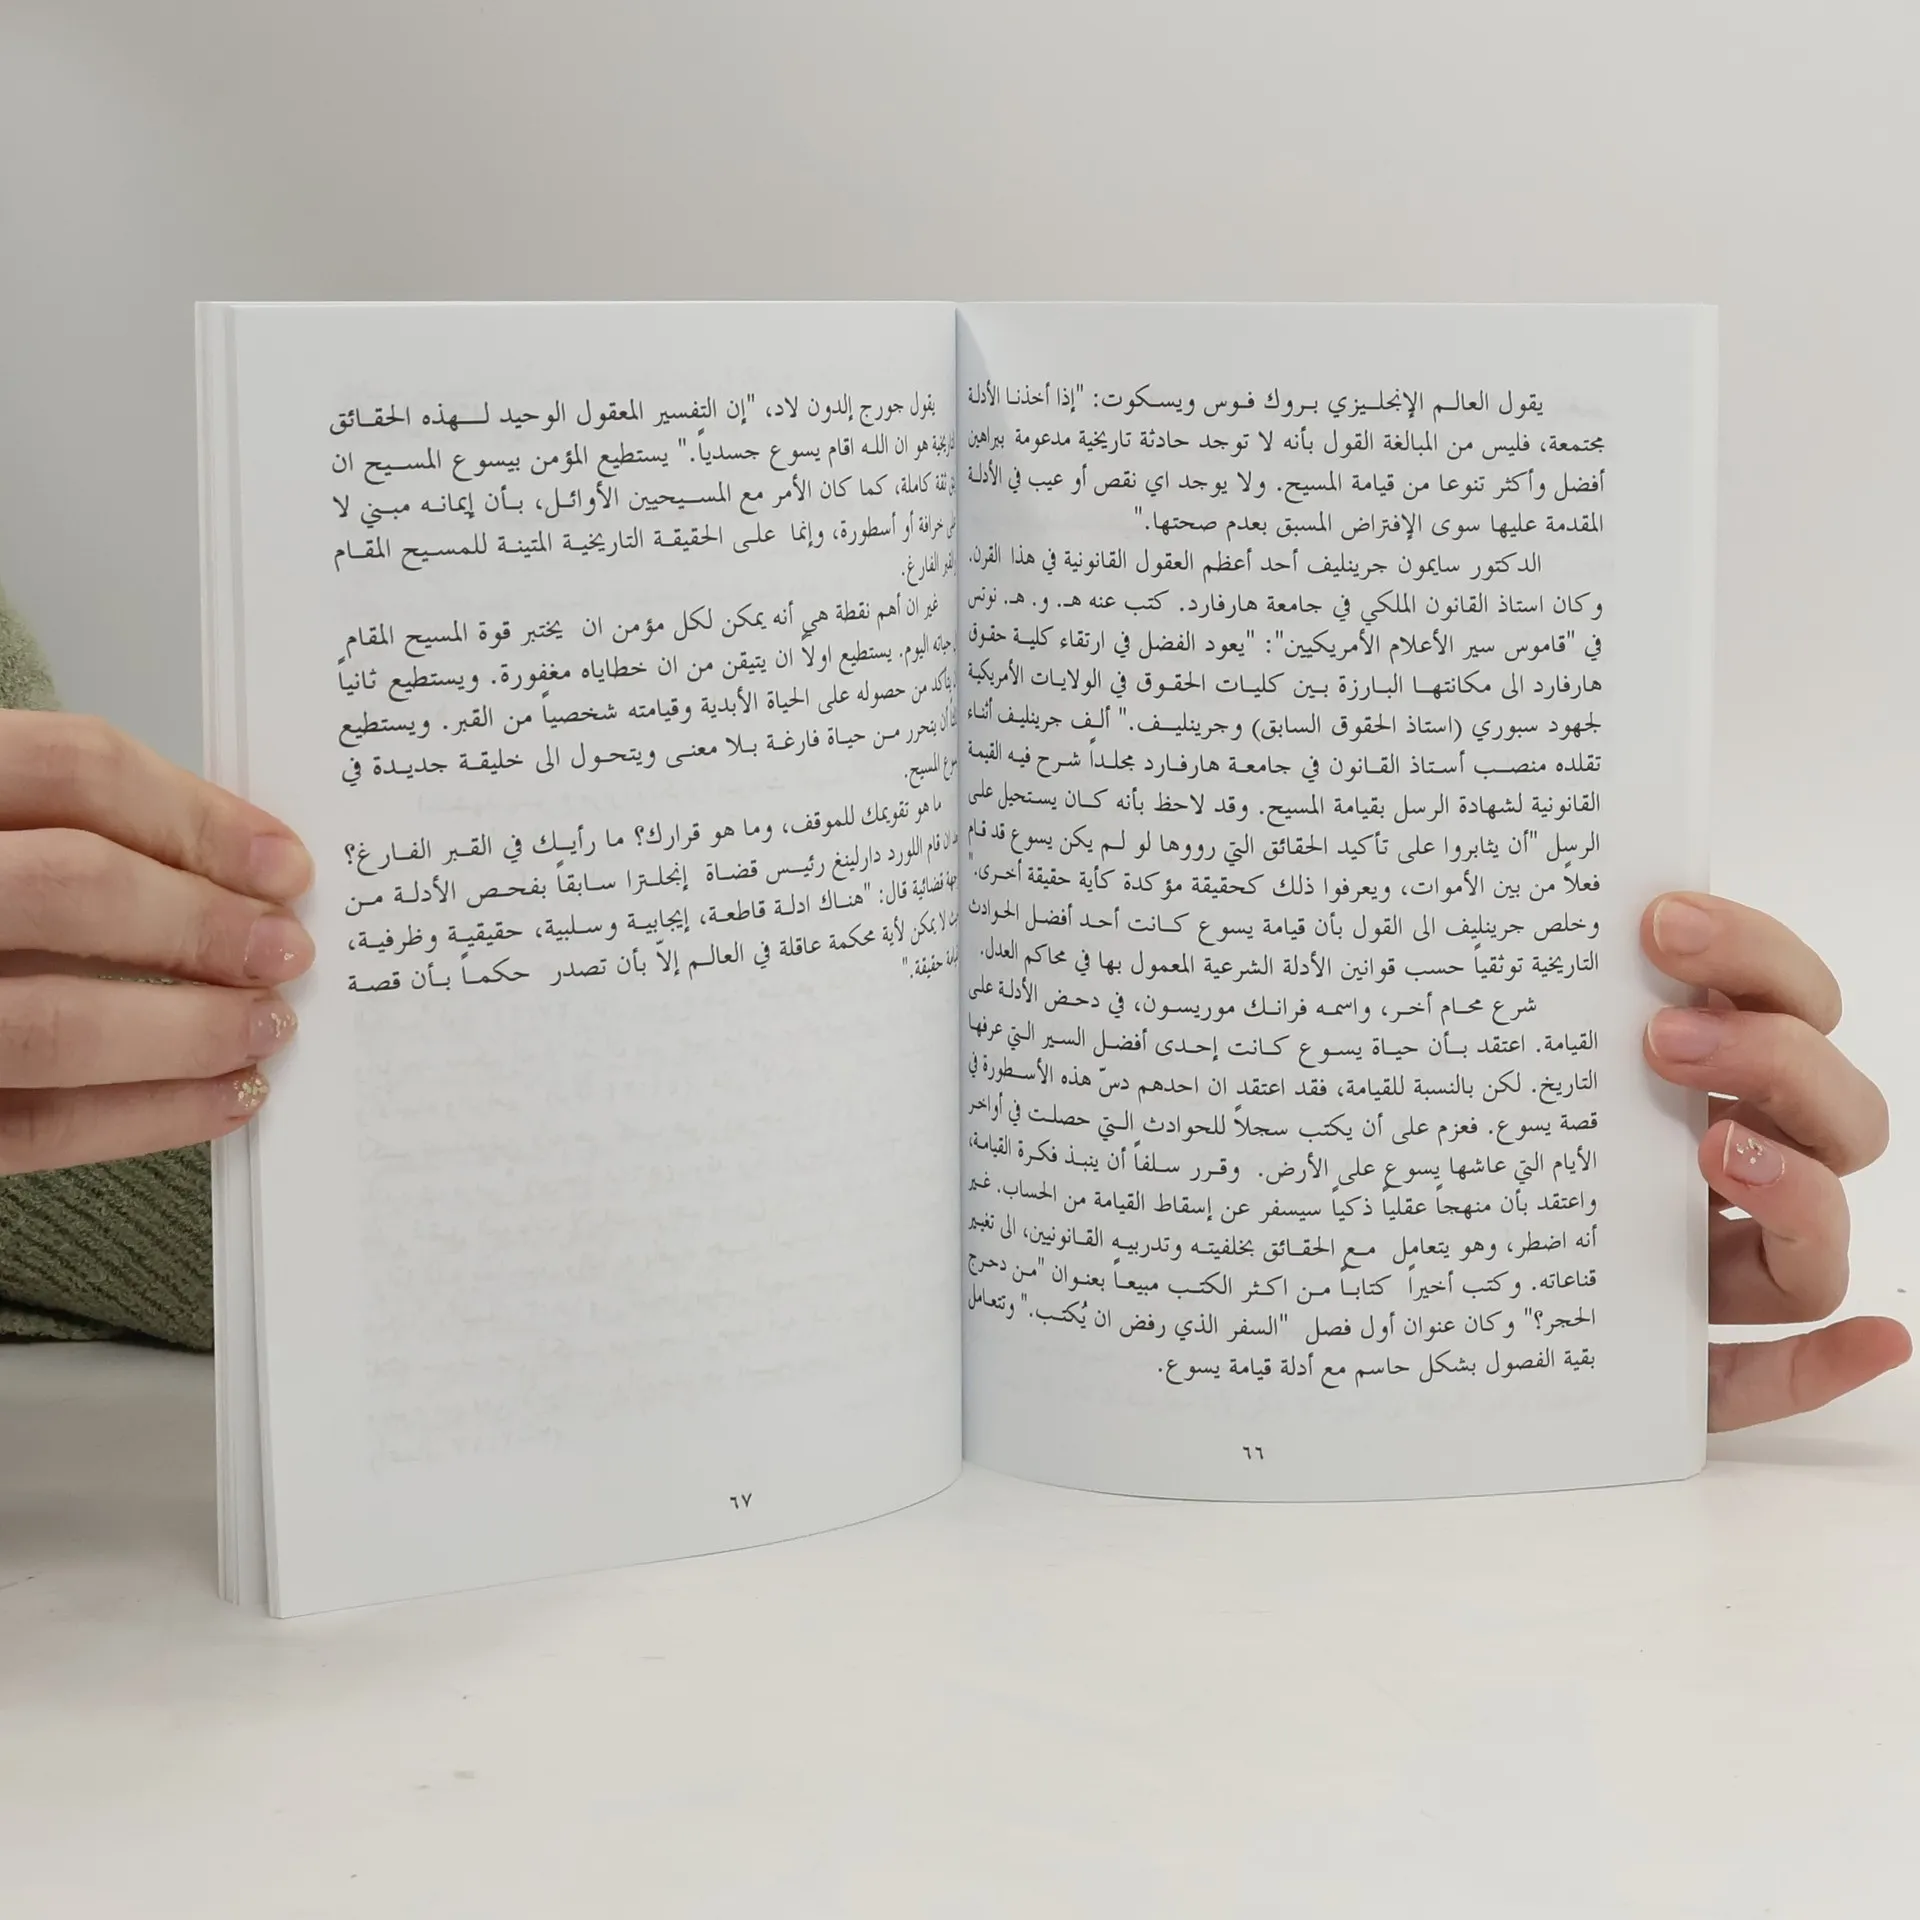 يقول العالم الإنجليزي بروك فوس ويسكوت: "إذا أخذنا الأدلة
مجتمعة، فليس من المبالغة القول بأنه لا توجد حادثة تاريخية مدعومة ببراهين
أفضل وأكثر تنوعا من قيامة المسيح. ولا يوجد اي نقص أو عيب في الأدلة
المقدمة عليها سوى الإفتراض المسبق بعدم صحتها."
الدكتور سايمون جرينليف أحد أعظم العقول القانونية في هذا القرن.
وكان استاذ القانون الملكي في جامعة هارفارد. كتب عنه هـ. و. هـ. نوتس
في "قاموس سير الأعلام الأمريكيين": "يعود الفضل في ارتقاء كلية حقوق
هارفارد الى مكانتها البارزة بين كليات الحقوق في الولايات الأمريكية
لجهود سبوري (استاذ الحقوق السابق) وجرينليف." ألف جرينليف أثناء
تقلده منصب أستاذ القانون في جامعة هارفارد مجلداً شرح فيه القيمة
القانونية لشهادة الرسل بقيامة المسيح. وقد لاحظ بأنه كان يستحيل على
الرسل "أن يثابروا على تأكيد الحقائق التي رووها لو لم يكن يسوع قد قام
فعلاً من بين الأموات، ويعرفوا ذلك كحقيقة مؤكدة كأية حقيقة أخرى."
وخلص جرينليف الى القول بأن قيامة يسوع كانت أحد أفضل الحوادث
التاريخية توثقياً حسب قوانين الأدلة الشرعية المعمول بها في محاكم العدل.
شرع محام أخر، واسمه فرانك موريسون، في دحض الأدلة على
القيامة. اعتقد بأن حياة يسوع كانت إحدى أفضل السير التي عرفها
التاريخ. لكن بالنسبة للقيامة، فقد اعتقد ان احدهم دسّ هذه الأسطورة في
قصة يسوع. فعزم على أن يكتب سجلاً للحوادث التي حصلت في أواخر
الأيام التي عاشها يسوع على الأرض. وقرر سلفاً أن ينبذ فكرة القيامة،
واعتقد بأن منهجاً عقلياً ذكياً سيسفر عن إسقاط القيامة من الحساب. غير
أنه اضطر، وهو يتعامل مع الحقائق بخلفيته وتدربيه القانونيين، الى تغيير
قناعاته. وكتب أخيراً كتاباً من اكثر الكتب مبيعاً بعنوان "من دحرج
الحجر؟" وكان عنوان أول فصل "السفر الذي رفض ان يُكتب." وتتعامل
بقية الفصول بشكل حاسم مع أدلة قيامة يسوع.
٦٦
يقول جورج إلدون لاد، "إن التفسير المعقول الوحيد لهذه الحقائق
هو ان الله اقام يسوع جسدياً." يستطيع المؤمن بيسوع المسيح ان
ثقة كاملة، كما كان الأمر مع المسيحيين الأوائل، بأن إيمانه مبني لا
خرافة أو أسطورة، وإنما على الحقيقة التاريخية المتينة للمسيح المقام
الفارغ.
غير ان أهم نقطة هي أنه يمكن لكل مؤمن ان يختبر قوة المسيح المقام
حياته اليوم. يستطيع اولاً ان يتيقن من ان خطاياه مغفورة. ويستطيع ثانياً
يتأكد من حصوله على الحياة الأبدية وقيامته شخصياً من القبر. ويستطيع
أن يتحرر من حياة فارغة بلا معنى ويتحول الى خليقة جديدة في
المسيح.
ما هو تقويمك للموقف، وما هو قرارك؟ ما رأيك في القبر الفارغ؟
ان قام اللورد دارلينغ رئيس قضاة إنجلترا سابقاً بفحص الأدلة من
قضائية قال: "هناك ادلة قاطعة، إيجابية وسلبية، حقيقية وظرفية،
لا يمكن لأية محكمة عاقلة في العالم إلاّ بأن تصدر حكماً بأن قصة
حقيقة."
٦٧